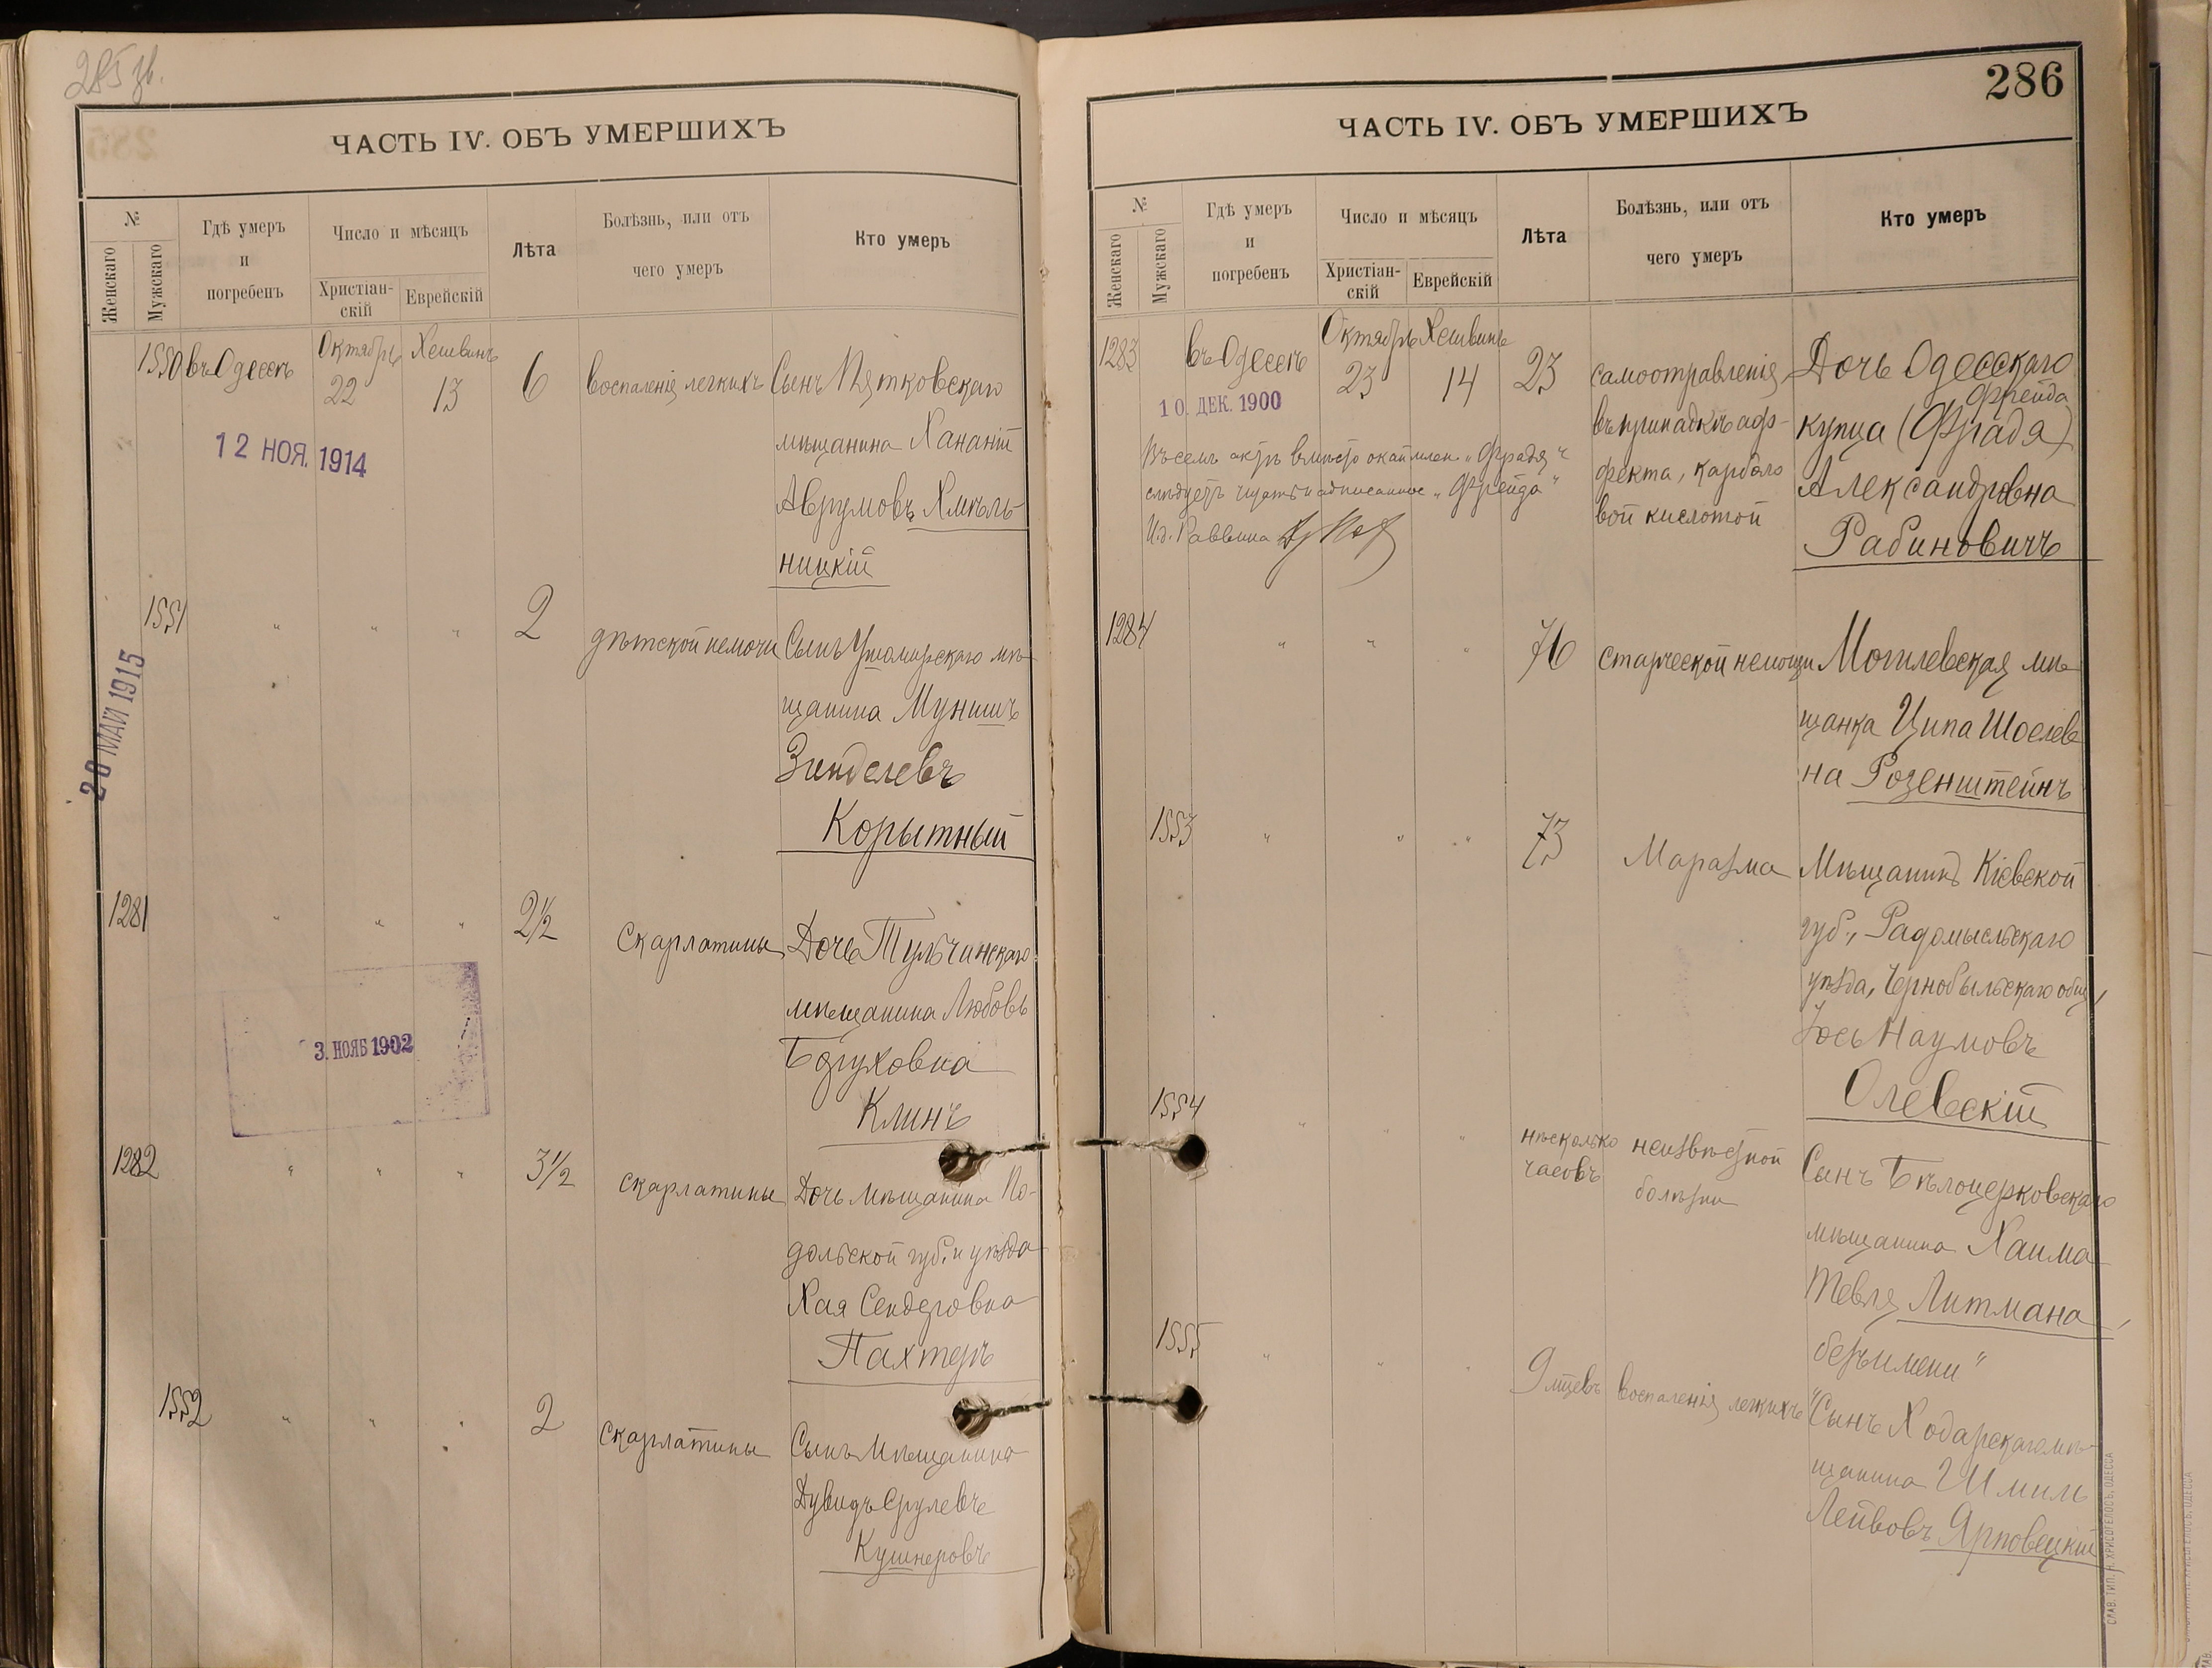 285 зв.
ЧАСТЬ IV. ОБЪ УМЕРШИХЪ
№
Женскаго
Мужскаго
Гдѣ умеръ
и
погребенъ
Число и мѣсяцъ
Христіан-
скій
Еврейскій
Лѣта
Болѣзнь, или отъ
чего умеръ
Кто умеръ
1550 въ Одессѣ Октябрь 22 Хешвинъ 13 6 воспаленія легкихъ Сынъ Пятковскаго
мѣщанина Хананій
Аврумовъ Хмѣль-
ницкій
12 НОЯ. 1914
1551 " " " 2 дѣтской немочи Сынъ Ушомирскаго мѣ-
щанина Мунишъ
Зинделевъ
Корытный
20 МАЙ 1915
1281 " " " 2½ скарлатины Дочь Тульчинскаго
мѣщанина Любовь
Боруховна
Клинъ
3. НОЯБ 1902
1282 " " " 3½ скарлатины Дочь мѣщанина По-
дольской губ. и уѣзда
Хая Сендеровна
Пахтеръ
1552 " " " 2 скарлатины Сынъ мѣщанина
Дувидъ Срулевъ
Кушнеровъ
286
ЧАСТЬ IV. ОБЪ УМЕРШИХЪ
№
Женскаго
Мужскаго
Гдѣ умеръ
и
погребенъ
Число и мѣсяцъ
Христіан-
скій
Еврейскій
Лѣта
Болѣзнь, или отъ
чего умеръ
Кто умеръ
1283 въ Одессѣ Октябрь 23 Хешвинъ 14 23 самоотравленія Дочь Одесскаго
въ припадкѣ аф- Фрейда
купца (Фрадя)
фекта, карболо Александровна
вой кислотой Рабиновичъ
10. ДЕК. 1900
Въ семъ актѣ вмѣсто окаймлен. „Фрадя"
слѣдуетъ читать надписанное „Фрейда"
И.д. Раввина
1284 " " " 76 старческой немощи Могилевская мѣ
щанка Ципа Шоелев
на Розенштейнъ
1553 " " " 73 Маразма Мѣщанинъ Кіевской
губ., Радомысльскаго
уѣзда, Чернобыльскаго общ.
Юсь Наумовъ
Олевскій
1554 " " " нѣсколько неизвѣстной Сынъ Бѣлоцерковскаго
часовъ болѣзни
мѣщанина Хаима
Тевля Литмана,
безъ имени"
1555 " " " 9 мцевъ воспаленія легкихъ "Сынъ Ходарскаго мѣ-
щанина Шмиль
Лейвовъ Ярповецкій
СЛАВ. ТИП. Н. ХРИСОГЕЛОСЪ, ОДЕССА